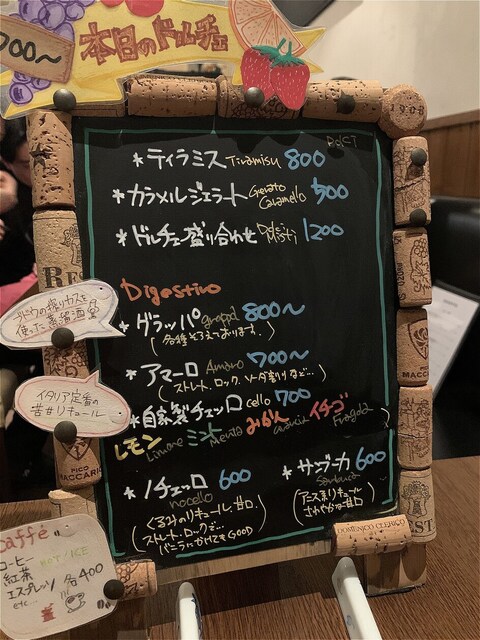 本日のドルチェ
700~
Dolci
*ティラミス Tiramisu 800
*カラメルジェラート Gelato Caramello 500
*ドルチェ盛り合わせ Dolci Misti 1200
Digestivo
*グラッパ grappa 800~
(各種そろえております。)
ブドウの搾りカスを
使った蒸留酒
*アマーロ Amaro 700~
(ストレート、ロック、ソーダ割りなど…)
イタリア定番の
苦甘リキュール
*自家製チェッロ cello 700
レモン Limone ミント Menta みかん Arancia イチゴ Fragola
*ノチェッロ 600
nocello
(くるみのリキュール 甘口。
ストレート、ロックで…
バニラにかけてもGOOD)
*サンブーカ 600
Sambuca
(アニス系リキュール
さわやかな甘口)
Caffé
コーヒー HOT/ICE
紅茶
エスプレッソ 各400
etc...
DOMENICO CLERICO
PICO
MACCARIO